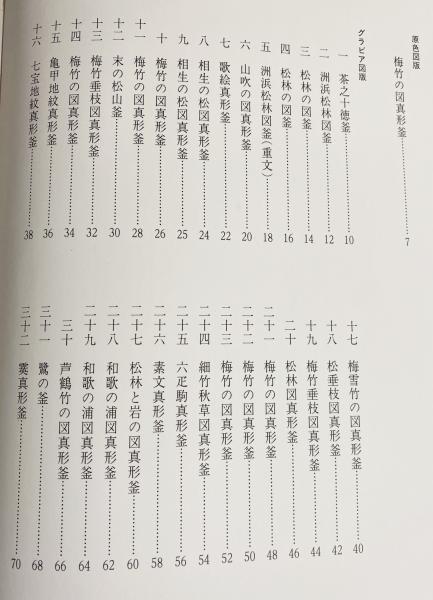 原色図版
梅竹の図真形釜……………7
グラビア図版
一 茶之十徳釜……………10
二 洲浜松林図釜……………12
三 松林の図釜……………14
四 松林の図釜……………16
五 洲浜松林図釜(重文)……………18
六 山吹の図真形釜……………20
七 歌絵真形釜……………22
八 相生の松図真形釜……………24
九 相生の松図真形釜……………25
十 梅竹の図真形釜……………26
十一 梅竹の図真形釜……………28
十二 末の松山釜……………30
十三 梅竹垂枝図真形釜……………32
十四 梅竹の図真形釜……………34
十五 亀甲地紋真形釜……………36
十六 七宝地紋真形釜……………38
十七 梅雪竹の図真形釜……………40
十八 松垂枝図真形釜……………42
十九 梅竹垂枝図真形釜……………44
二十 松林図真形釜……………46
二十一 梅竹の図真形釜……………48
二十二 梅竹の図真形釜……………50
二十三 梅竹の図真形釜……………52
二十四 細竹秋草図真形釜……………54
二十五 六疋駒真形釜……………56
二十六 素文真形釜……………58
二十七 松林と岩の図真形釜……………60
二十八 和歌の浦図真形釜……………62
二十九 和歌の浦図真形釜……………64
三十 芦鶴竹の図真形釜……………66
三十一 鷺の釜……………68
三十二 霙真形釜……………70